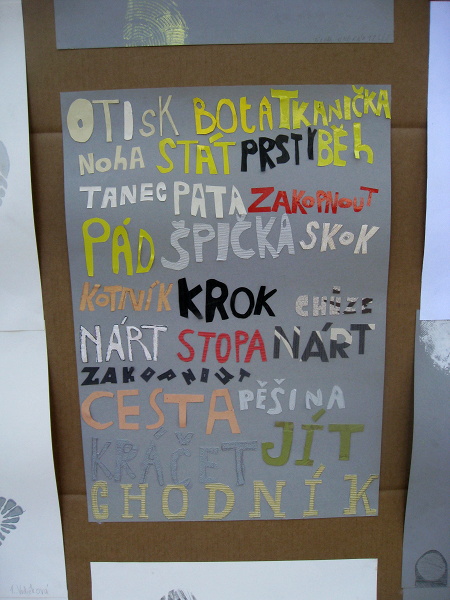 OTISK BOTA TKANIČKA
NOHA STÁT PRSTY BĚH
TANEC PATA ZAKOPNOUT
PÁD ŠPIČKA SKOK
KOTNÍK KROK CHŮZE
NÁRT STOPA NÁRT
ZAKOPNIUT
CESTA PĚŠINA
KRÁČET JÍT
CHODNÍK